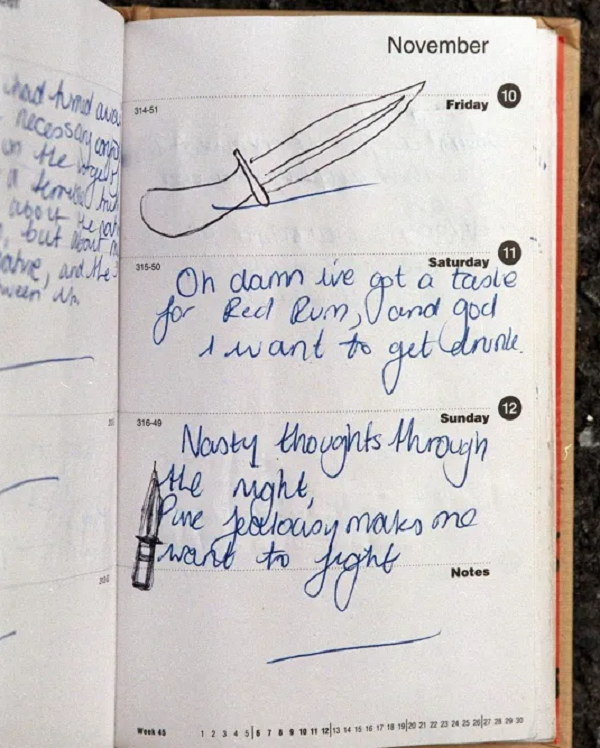 had turned awa
necessary
on the
a terrible
about
, but about
, and the
ween
November
Friday 10
314-51
Saturday 11
315-50
Oh damn i've got a taste
for Red Rum, and god
I want to get drunk.
Sunday 12
316-49
Nasty thoughts through
the night,
Pure jealousy makes me
want to fight
Notes
Week 45 1 2 3 4 5 6 7 8 9 10 11 12 13 14 15 16 17 18 19 20 21 22 23 24 25 26 27 28 29 30